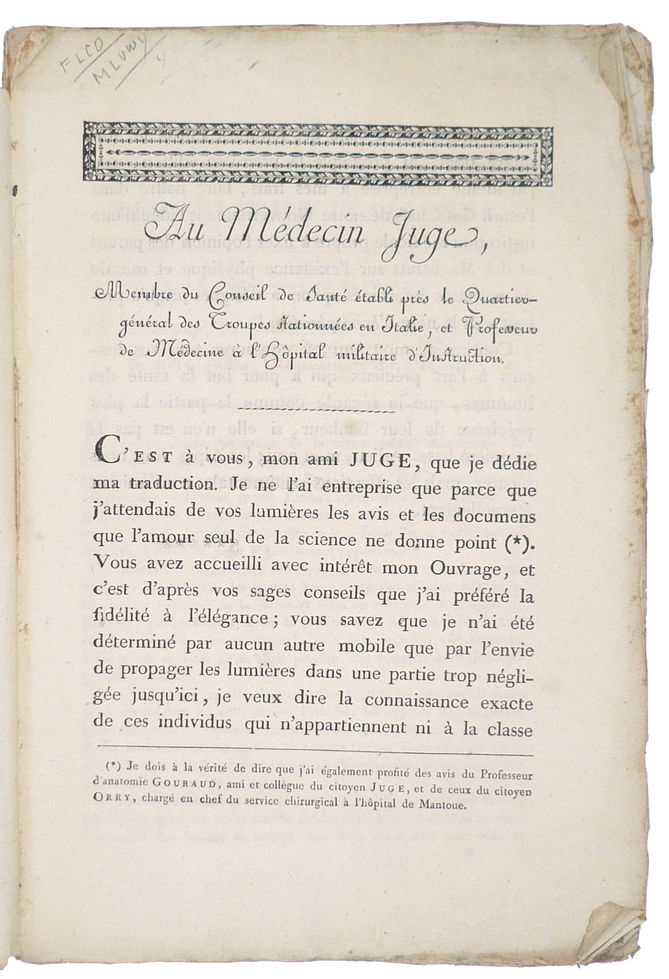 FLCO
MLUWL
Au Médecin Juge,
Membre du Conseil de Santé établi près le Quartier-
général des Troupes stationnées en Italie, et Professeur
de Médecine à l'Hôpital militaire d'Instruction.
C'EST à vous, mon ami JUGE, que je dédie
ma traduction. Je ne l'ai entreprise que parce que
j'attendais de vos lumières les avis et les documens
que l'amour seul de la science ne donne point (*).
Vous avez accueilli avec intérêt mon Ouvrage, et
c'est d'après vos sages conseils que j'ai préféré la
fidélité à l'élégance; vous savez que je n'ai été
déterminé par aucun autre mobile que par l'envie
de propager les lumières dans une partie trop négli-
gée jusqu'ici, je veux dire la connaissance exacte
de ces individus qui n'appartiennent ni à la classe
(*) Je dois à la vérité de dire que j'ai également profité des avis du Professeur
d'anatomie GOURAUD, ami et collègue du citoyen JUGE, et de ceux du citoyen
ORRY, chargé en chef du service chirurgical à l'hôpital de Mantoue.